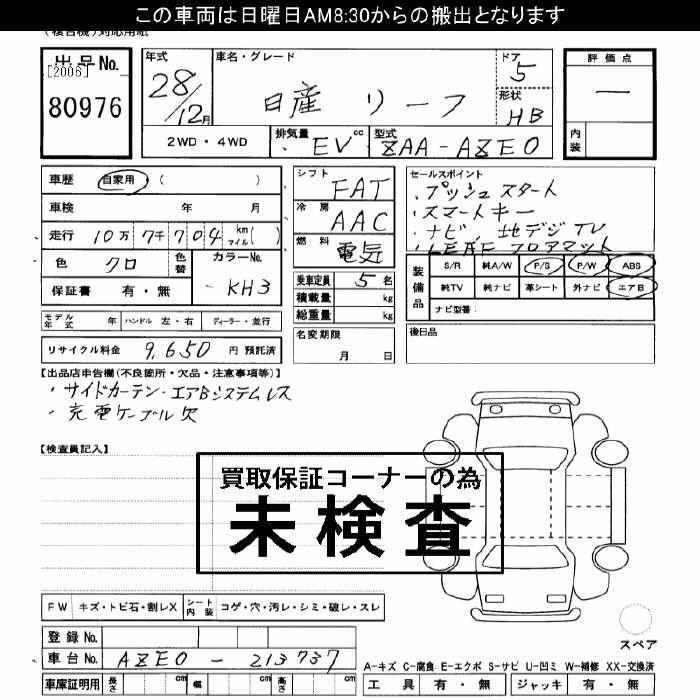 この車両は日曜日AM8:30からの搬出となります
(複合機)対応用紙
出品No.
[2006]
80976
年式
28/12月
車名・グレード
日産 リーフ
ドア
5
形状
HB
評価点
一
内装
2WD・4WD
排気量
EV cc
型式
ZAA-AZE0
車歴 自家用・( )
車検 年 月
走行 10万7千704 km マイル( )
色 クロ 色替
カラーNo.
KH3
保証書 有・無
モデル年式 年 ハンドル 左・右 ディーラー・並行
リサイクル料金 9,650 円 預託済
シフト
FAT
冷房
AAC
燃料
電気
乗車定員 5 名
積載量 kg
総重量 kg
名変期限
月 日
セールスポイント
・プッシュスタート
・スマートキー
・ナビ、地デジTV
・LEAFフロアマット
装備品
S/R 純A/W P/S P/W ABS
純TV 純ナビ 革シート 外ナビ エアB
ナビ型番:
後日品
【出品店申告欄(不良箇所・欠品・注意事項等)】
・サイドカーテン・エアBシステムレス
・充電ケーブル欠
【検査員記入】
買取保証コーナーの為
未検査
FW キズ・トビ石・割レX シート内装 コゲ・穴・汚レ・シミ・破レ・スレ
登録No.
車台No. AZE0-213737
車庫証明用 長さ cm 幅 cm 高さ cm
スペア
A-キズ C-腐食 E-エクボ S-サビ U-凹ミ W-補修 XX-交換済
工具 有・無 ジャッキ 有・無